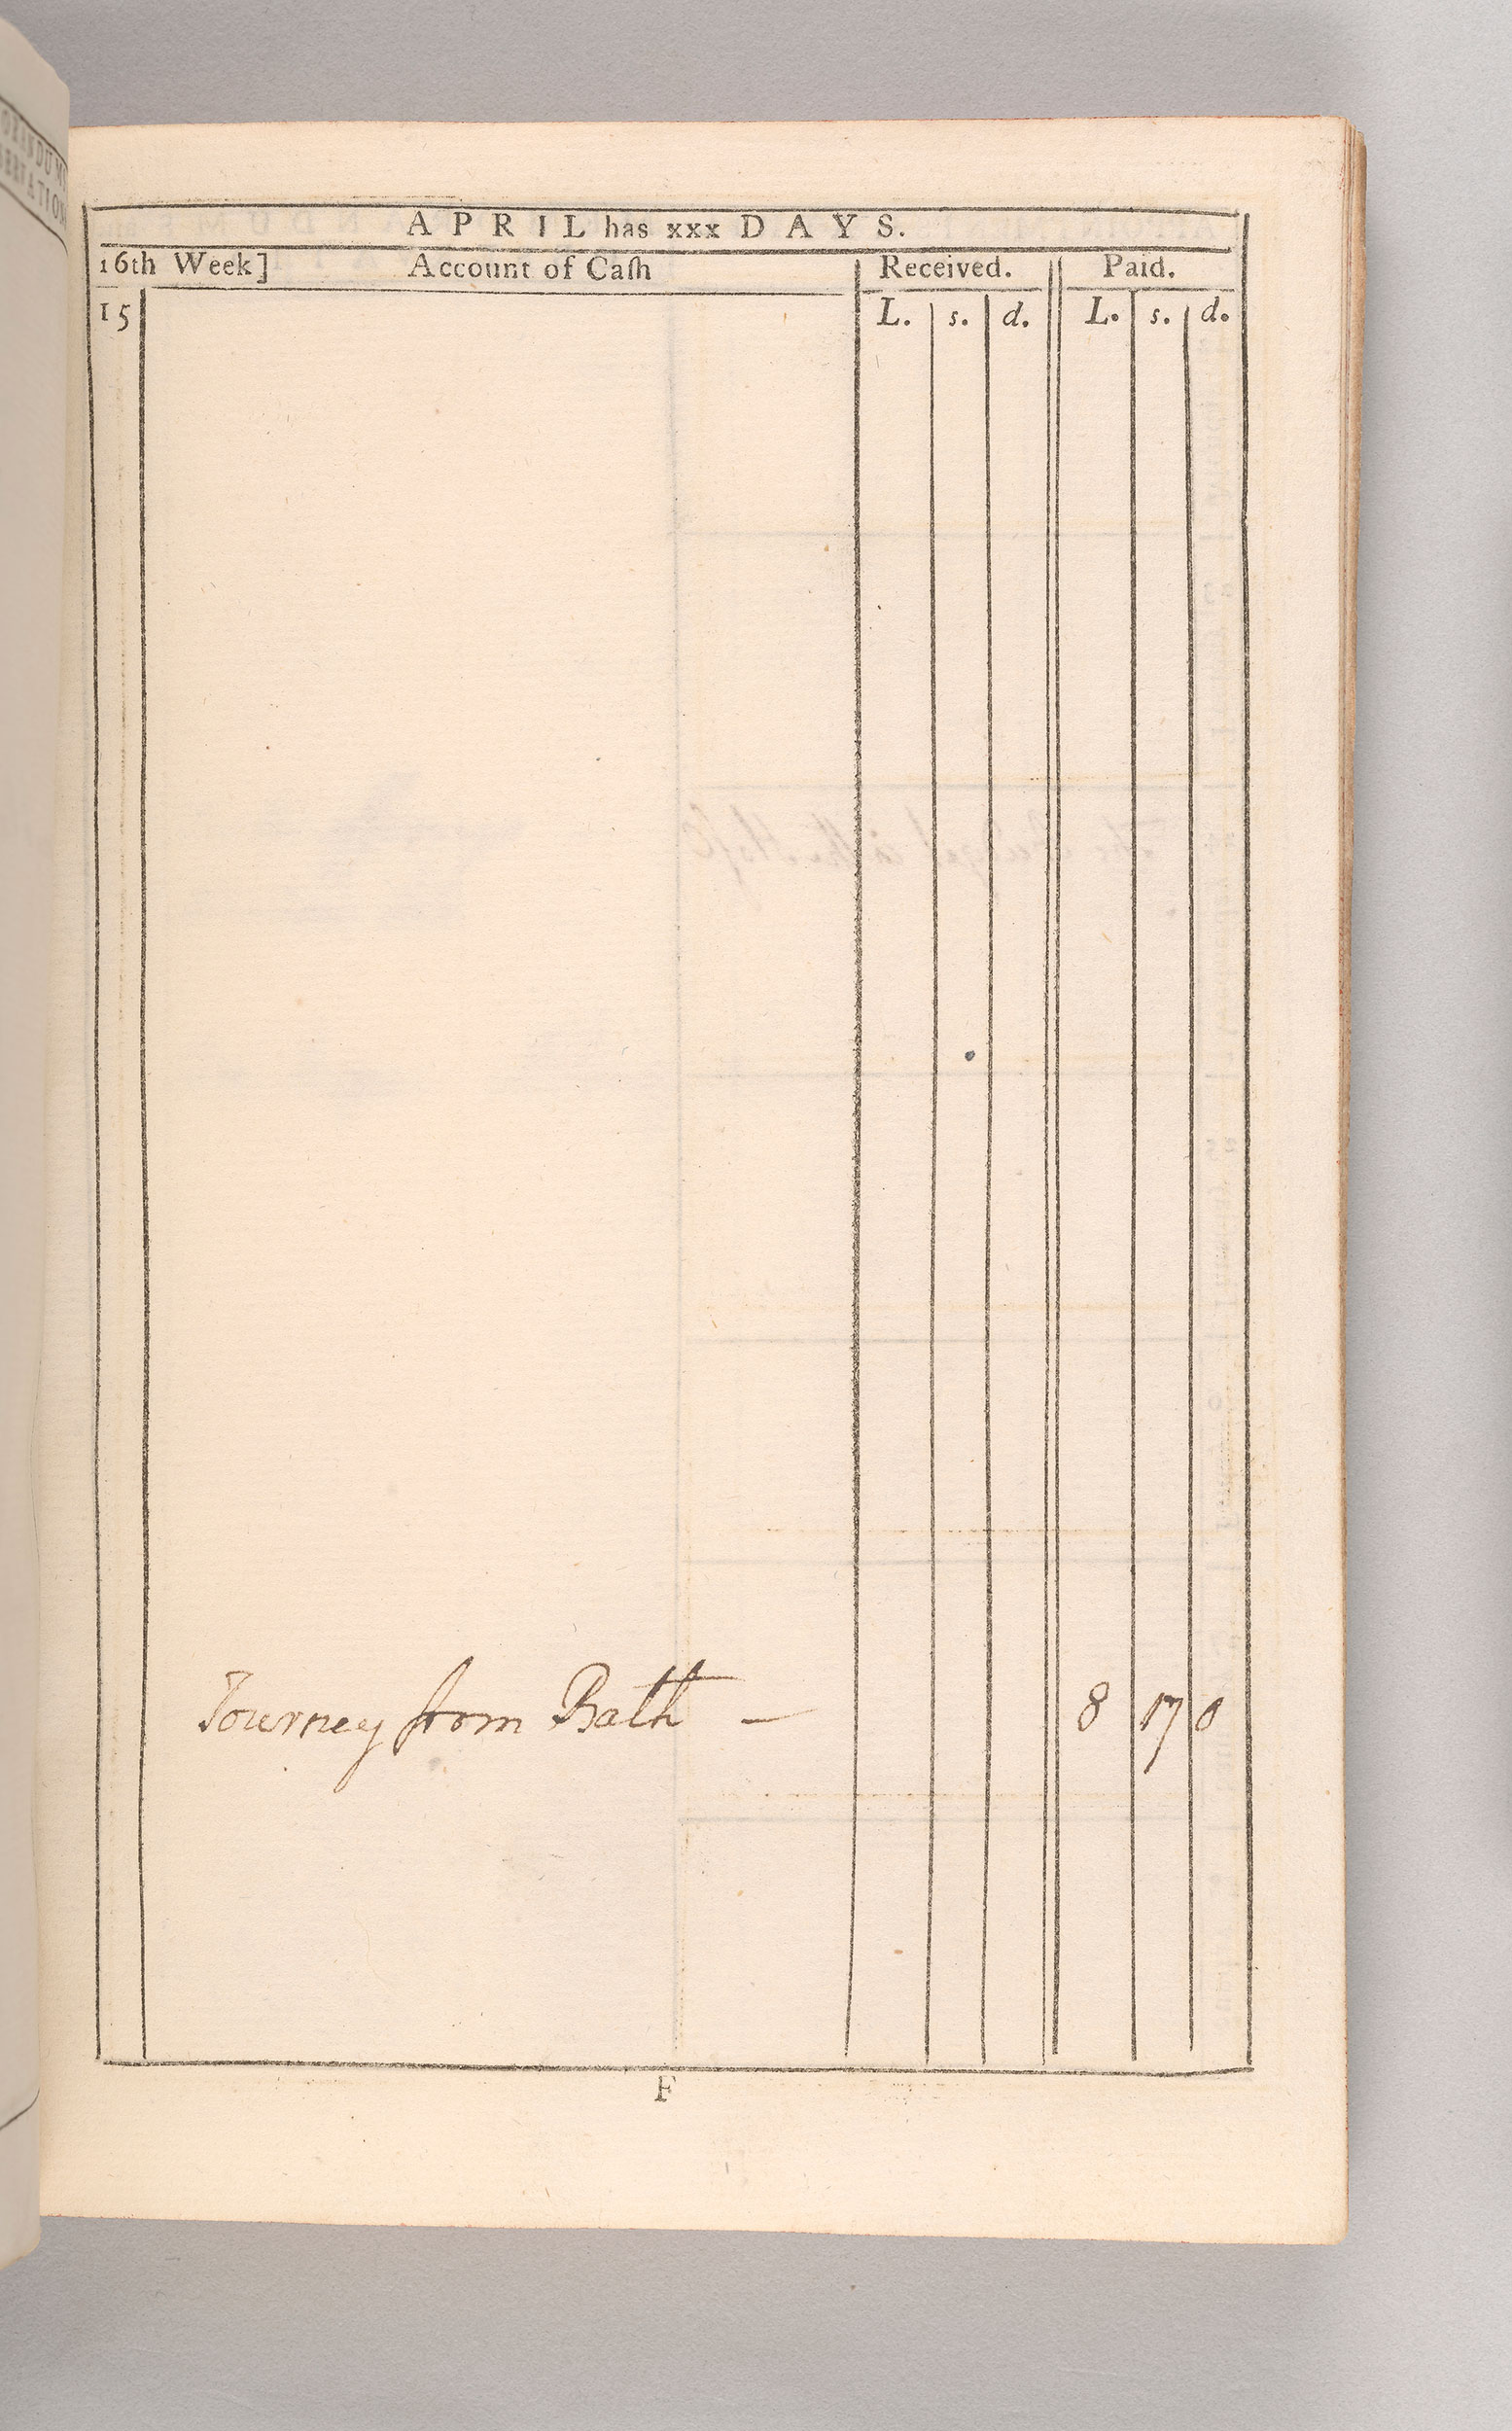 APRIL has xxx DAYS.
16th Week] Account of Caſh Received. Paid.
15 L. s. d. L. s. d.
Journey from Bath — 8 17 0
F